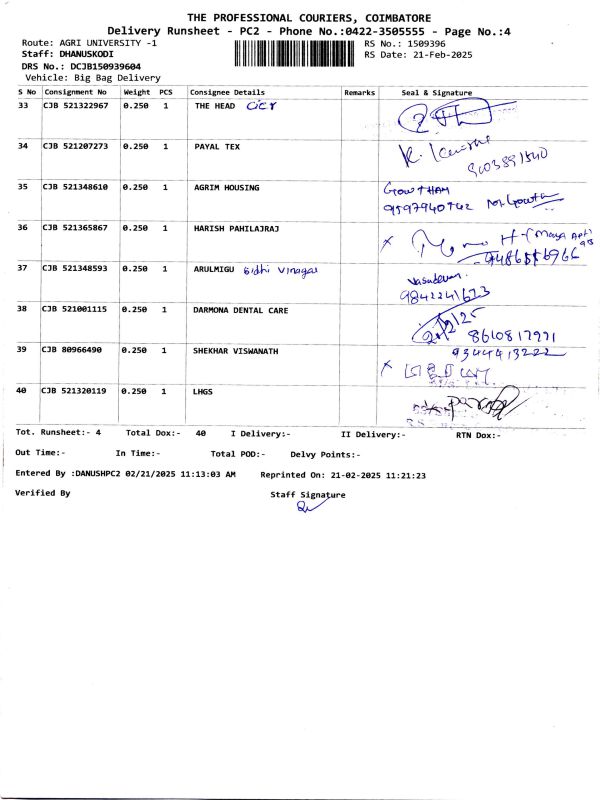 THE PROFESSIONAL COURIERS, COIMBATORE
Delivery Runsheet - PC2 - Phone No.:0422-3505555 - Page No.:4
Route: AGRI UNIVERSITY -1 RS No.: 1509396
Staff: DHANUSKODI RS Date: 21-Feb-2025
DRS No.: DCJB150939604
Vehicle: Big Bag Delivery
S No Consignment No Weight PCS Consignee Details Remarks Seal & Signature
33 CJB 521322967 0.250 1 THE HEAD
34 CJB 521207273 0.250 1 PAYAL TEX
9003891540
35 CJB 521348610 0.250 1 AGRIM HOUSING GowTHAM
9597940742
36 CJB 521365867 0.250 1 HARISH PAHILAJRAJ
37 CJB 521348593 0.250 1 ARULMIGU Sidhi Vinagar Vasudevan
9842241673
38 CJB 521001115 0.250 1 DARMONA DENTAL CARE
8610817971
39 CJB 80966490 0.250 1 SHEKHAR VISWANATH 9344413222
40 CJB 521320119 0.250 1 LHGS
Tot. Runsheet:- 4 Total Dox:- 40 I Delivery:- II Delivery:- RTN Dox:-
Out Time:- In Time:- Total POD:- Delvy Points:-
Entered By :DANUSHPC2 02/21/2025 11:13:03 AM Reprinted On: 21-02-2025 11:21:23
Verified By Staff Signature